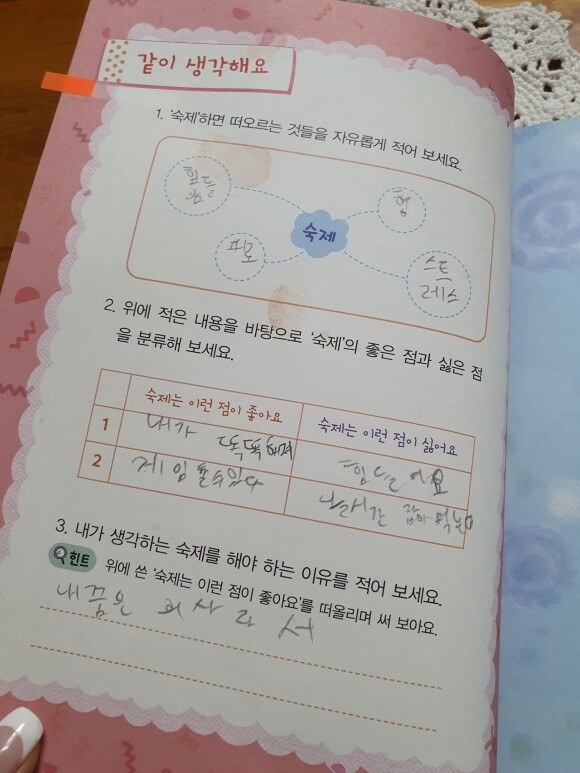 같이 생각해요
1. '숙제'하면 떠오르는 것들을 자유롭게 적어 보세요.
힘듦
형
숙제
피로
스트
레스
2. 위에 적은 내용을 바탕으로 '숙제'의 좋은 점과 싫은 점
을 분류해 보세요.
숙제는 이런 점이 좋아요
숙제는 이런 점이 싫어요
1
내가 똑똑해져
힘들어요
2
게임할수있다
놀시간 잡아먹는다
3. 내가 생각하는 숙제를 해야 하는 이유를 적어 보세요.
힌트
위에 쓴 '숙제는 이런 점이 좋아요'를 떠올리며 써 보아요.
내꿈은 의사라서